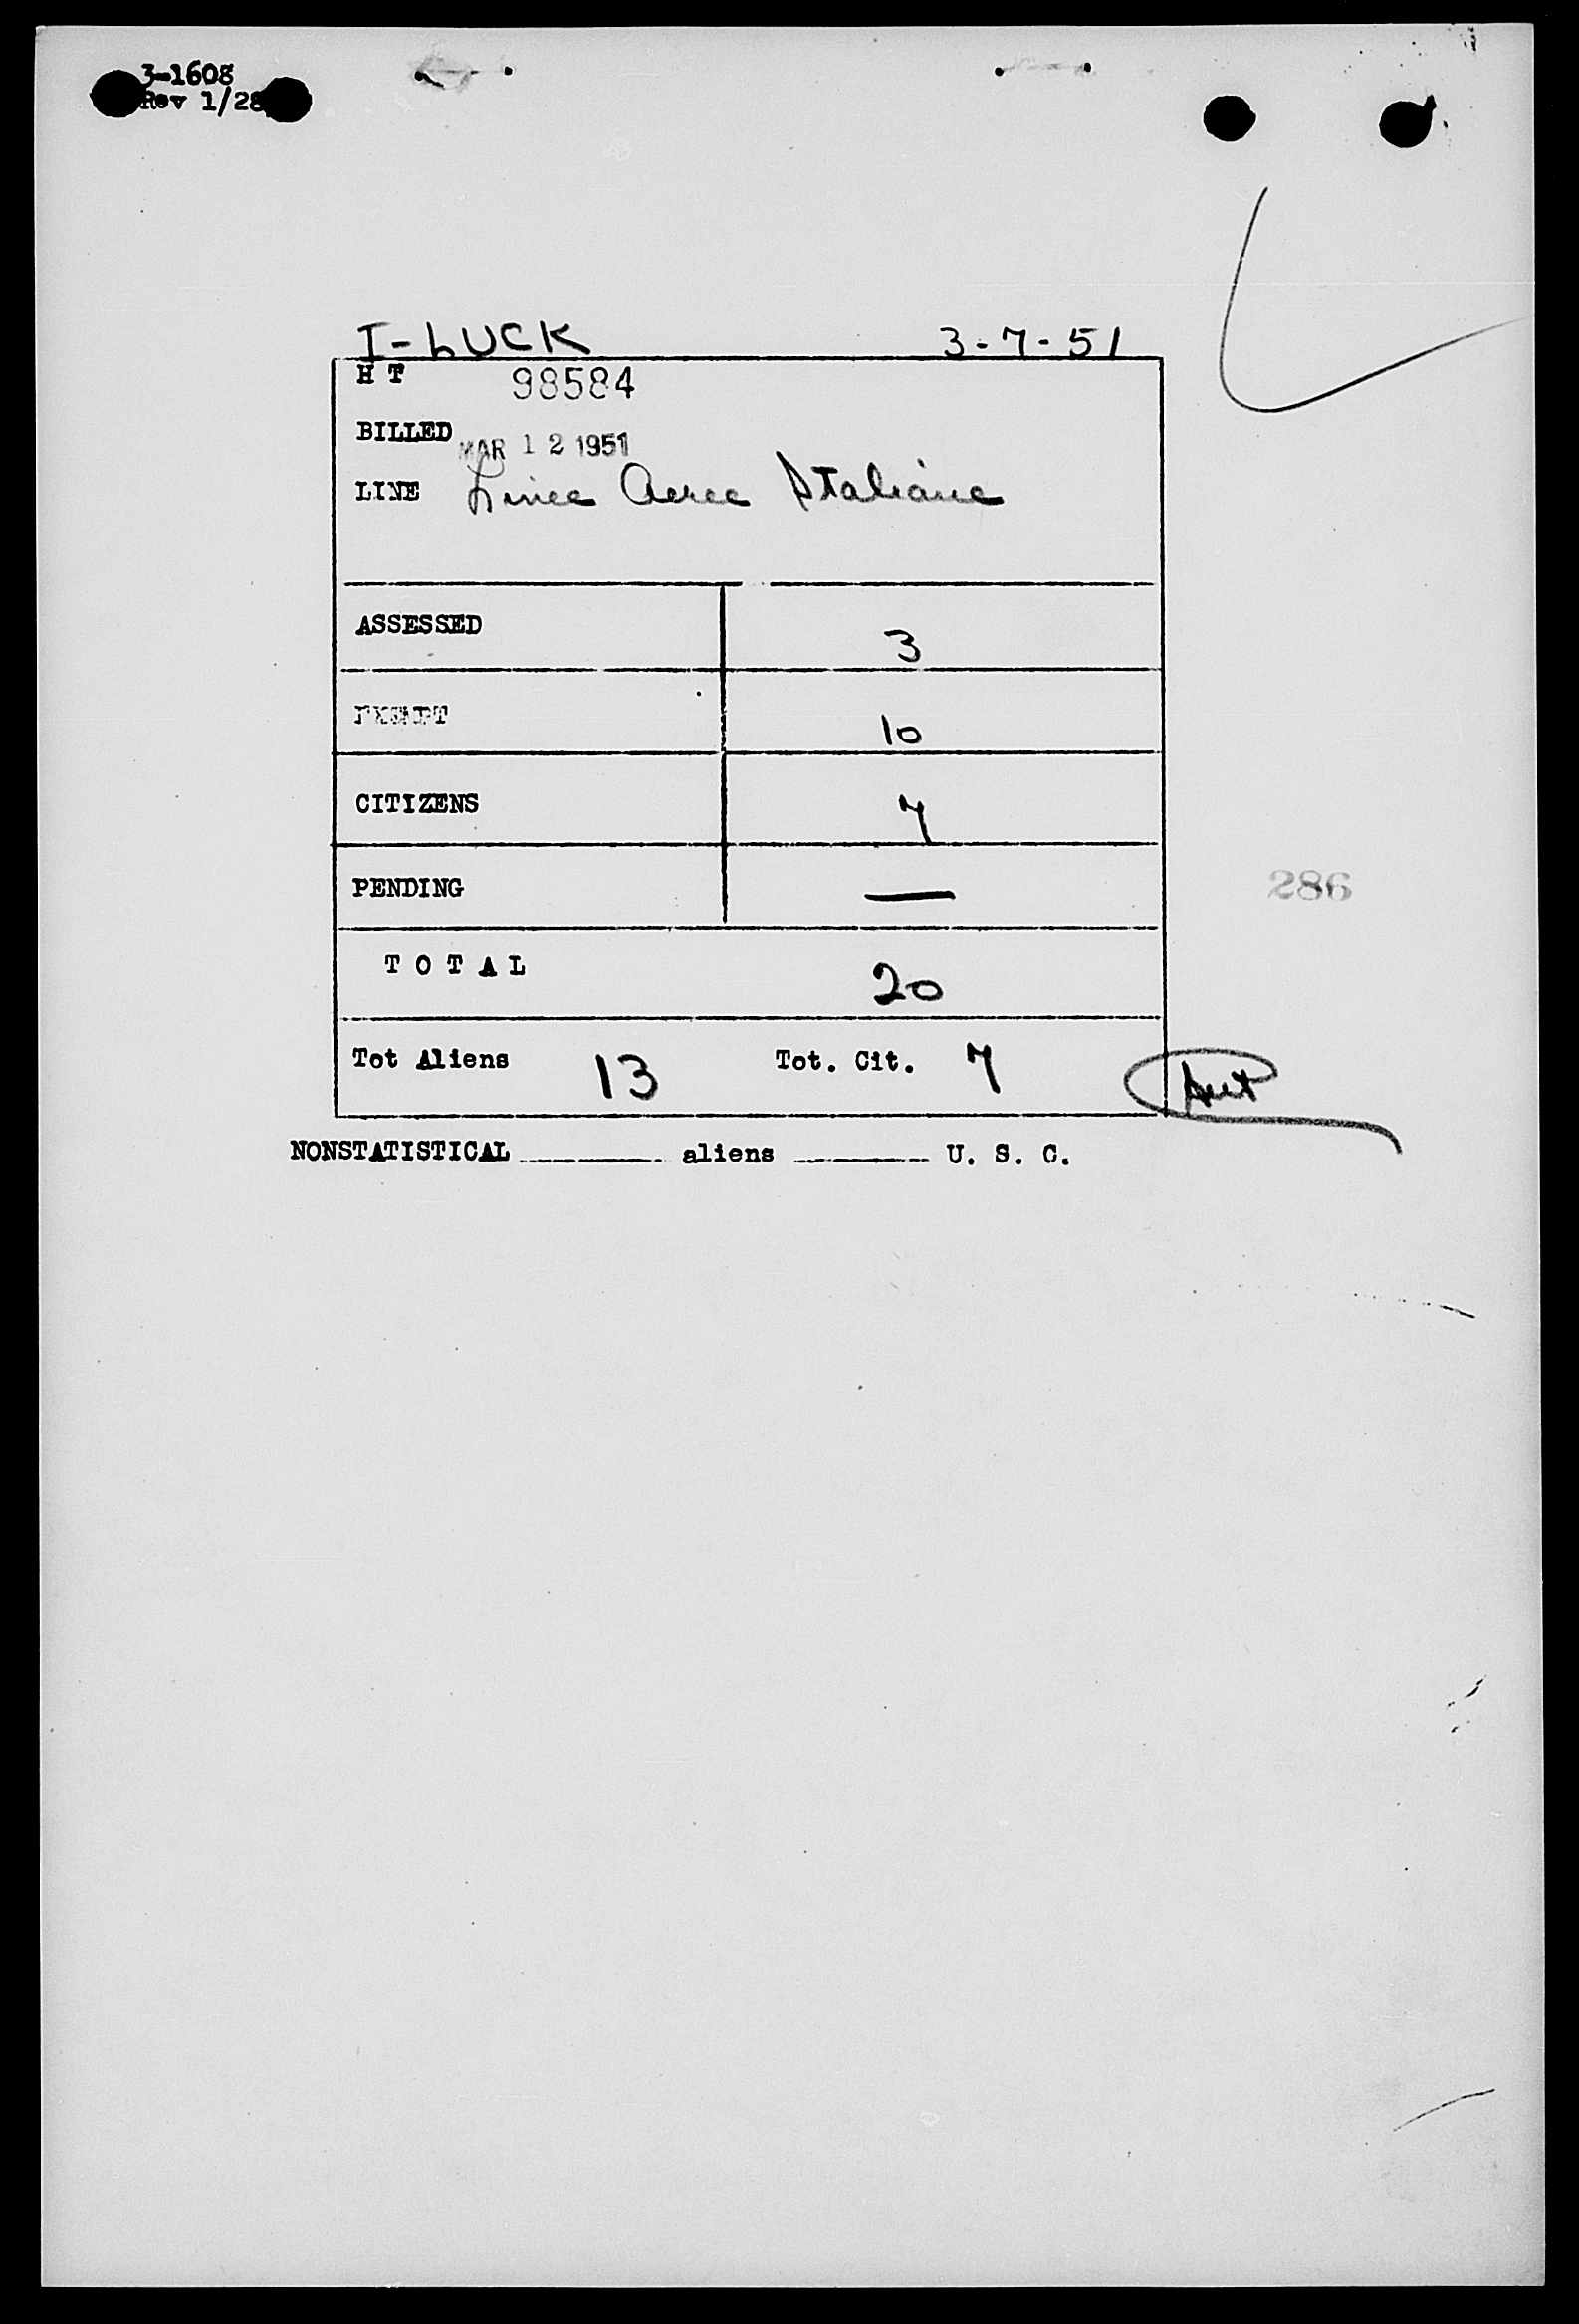 3-1608
Rev 1/28
I-LUCK 3-7-51
H T 98584
BILLED MAR 12 1951
LINE Linee Aeree Italiane
ASSESSED 3
EXEMPT 10
CITIZENS 7
PENDING —
286
T O T A L 20
Tot Aliens 13 Tot. Cit. 7
NONSTATISTICAL ________ aliens ________ U. S. C.